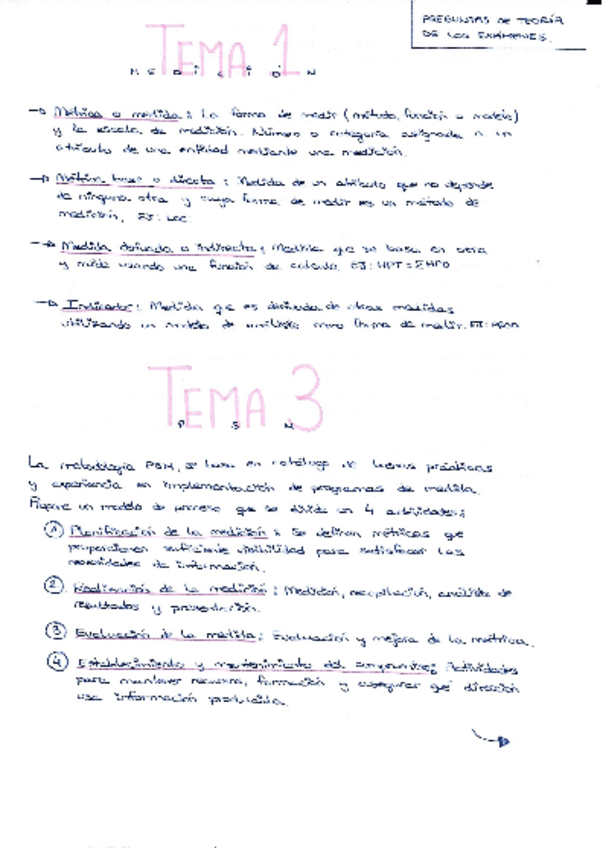 PREGUNTAS DE TEORÍA
DE LOS EXÁMENES.
TEMA 1
MEDICIÓN
→ Métrica o medida: La forma de medir (método, función o modelo)
y la escala de medición. Número o categoría asignada a un
atributo de una entidad mediante una medición.
→ Métrica base o directa: Medida de un atributo que no depende
de ninguna otra y cuya forma de medir es un método de
medición. EJ: LOC
→ Medida derivada o indirecta: Medida que se basa en otra
y mide usando una función de cálculo. EJ: HPT =
→ Indicador: Medida que es derivada de otras medidas
utilizando un modelo de análisis como forma de medir. EJ:
TEMA 3
PSM
La metodología PSM, se basa en catálogo de buenas prácticas
y experiencia en implementación de programas de medida.
Propone un modelo de proceso que se divide en 4 actividades:
① Planificación de la medición: Se definen métricas que
proporcionen suficiente visibilidad para satisfacer las
necesidades de información.
② Realización de la medición: Medición, recopilación, análisis de
resultados y presentación.
③ Evaluación de la medida: Evaluación y mejora de la métrica.
④ Establecimiento y mantenimiento del compromiso: Actividades
para mantener recursos, formación y asegurar que dirección
use información producida.